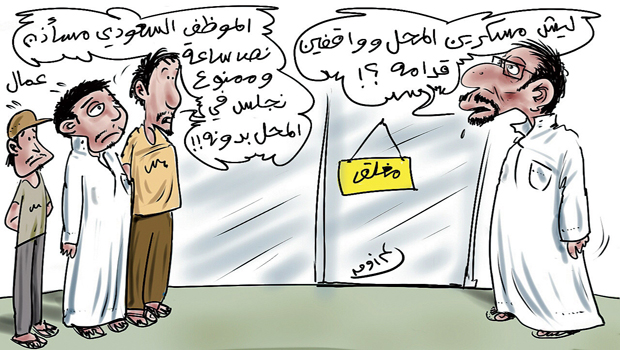 ليش مسكرين المحل وواقفين
قدامه ؟!
الموظف السعودي مستأذن
نص ساعة
وممنوع
نجلس في
المحل بدونه!!
عمال
مغلق